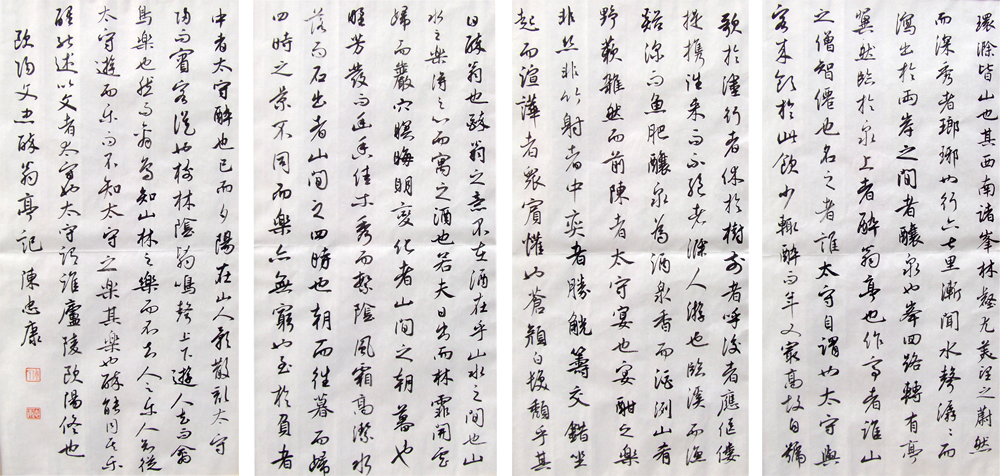 環滁皆山也其西南諸峯林壑尤美望之蔚然
而深秀者瑯琊也行六七里漸聞水聲潺潺而
瀉出於兩峯之間者釀泉也峯回路轉有亭
翼然臨於泉上者醉翁亭也作亭者誰山
之僧智僊也名之者誰太守自謂也太守與
客來飲於此飲少輒醉而年又最高故自號
歌於塗行者休於樹前者呼後者應傴僂
提攜往來而不絕者滁人遊也臨溪而漁
谿深而魚肥釀泉為酒泉香而酒洌山肴
野蔌雜然而前陳者太守宴也宴酣之樂
非絲非竹射者中奕者勝觥籌交錯坐
起而諠譁者眾賓懽也蒼顏白髮頹乎其
曰醉翁也醉翁之意不在酒在乎山水之間也山
水之樂得之心而寓之酒也若夫日出而林霏開雲
歸而巖穴暝晦明變化者山間之朝暮也
野芳發而幽香佳木秀而繁陰風霜高潔水
落而石出者山間之四時也朝而往暮而歸
四時之景不同而樂亦無窮也至於負者
中者太守醉也已而夕陽在山人影散亂太守
歸而賓客從也樹林陰翳鳴聲上下遊人去而禽
鳥樂也然而禽鳥知山林之樂而不知人之樂人知從
太守遊而樂而不知太守之樂其樂也醉能同其樂
醒能述以文者太守也太守謂誰廬陵歐陽修也
歐陽文忠醉翁亭記 陳忠康